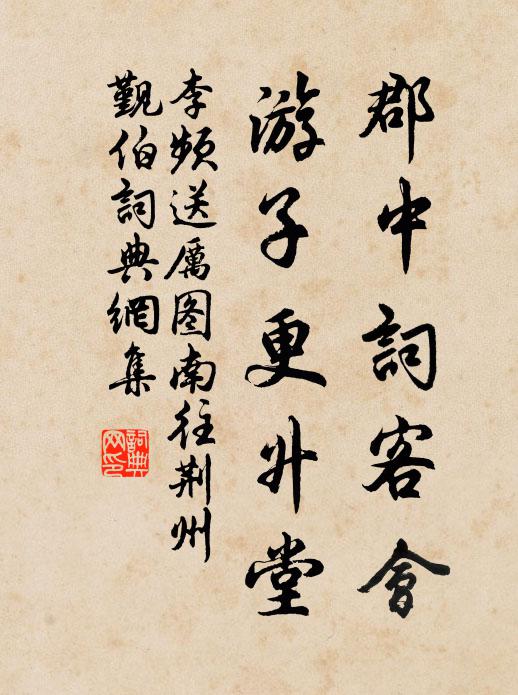 郡中詞客會
游子更升堂
李頻送厲图南往荆州
覲伯詞典網集
詞典网印